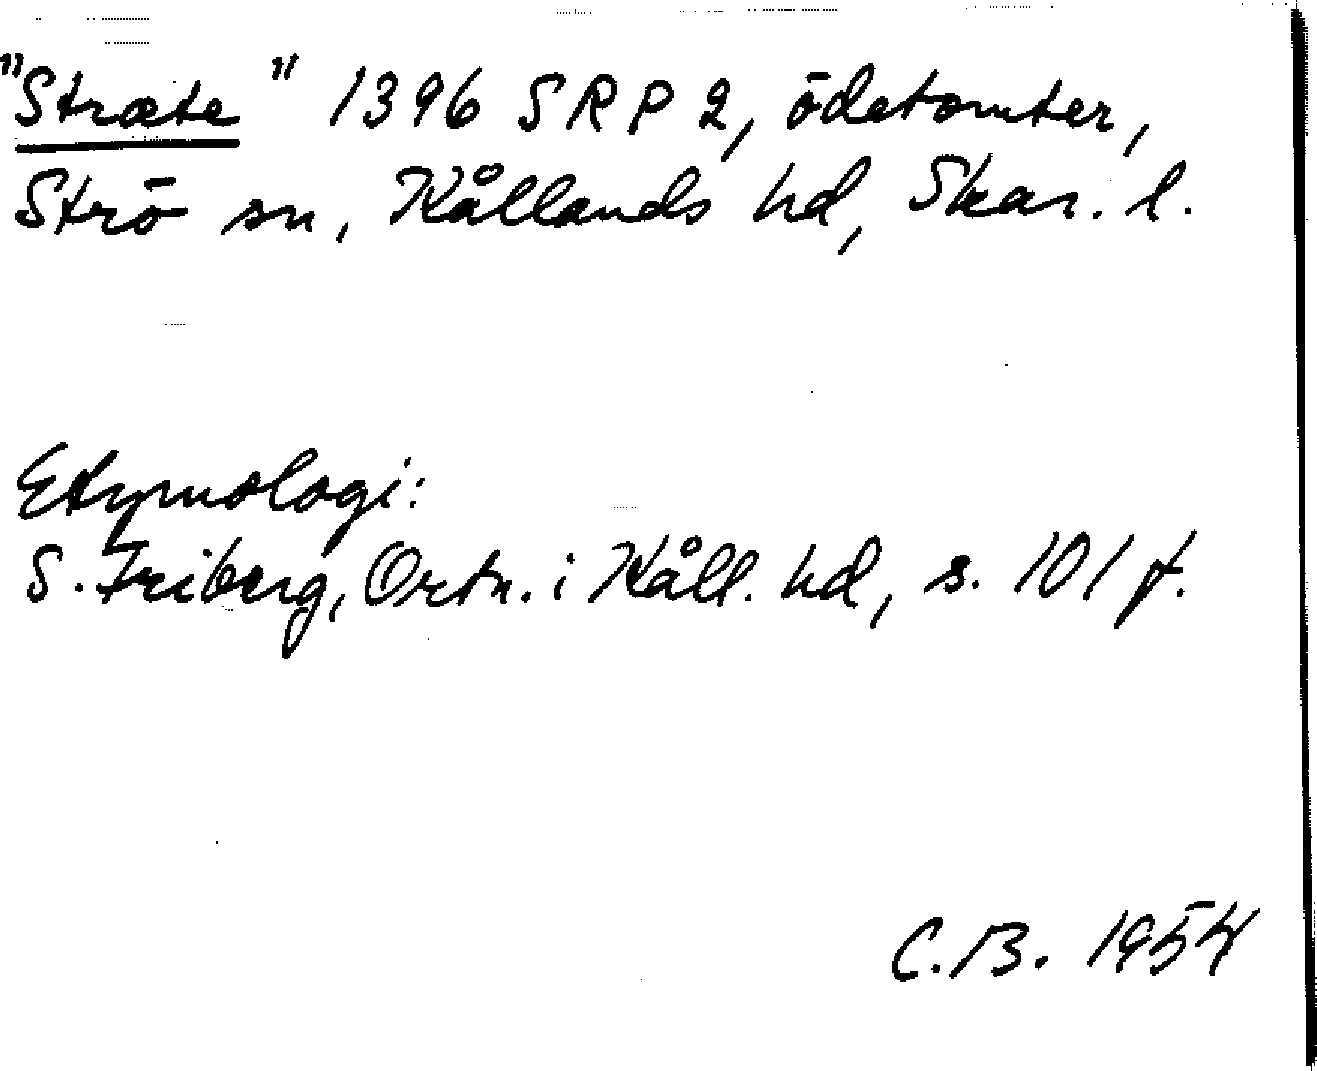 "Stræte" 1396 SRP 2, ödetomter,
Strö sn, Kållands hd, Skar. l.
Etymologi:
S. Friberg, Ortn. i Kåll. hd, s. 101 f.
C.B. 1954